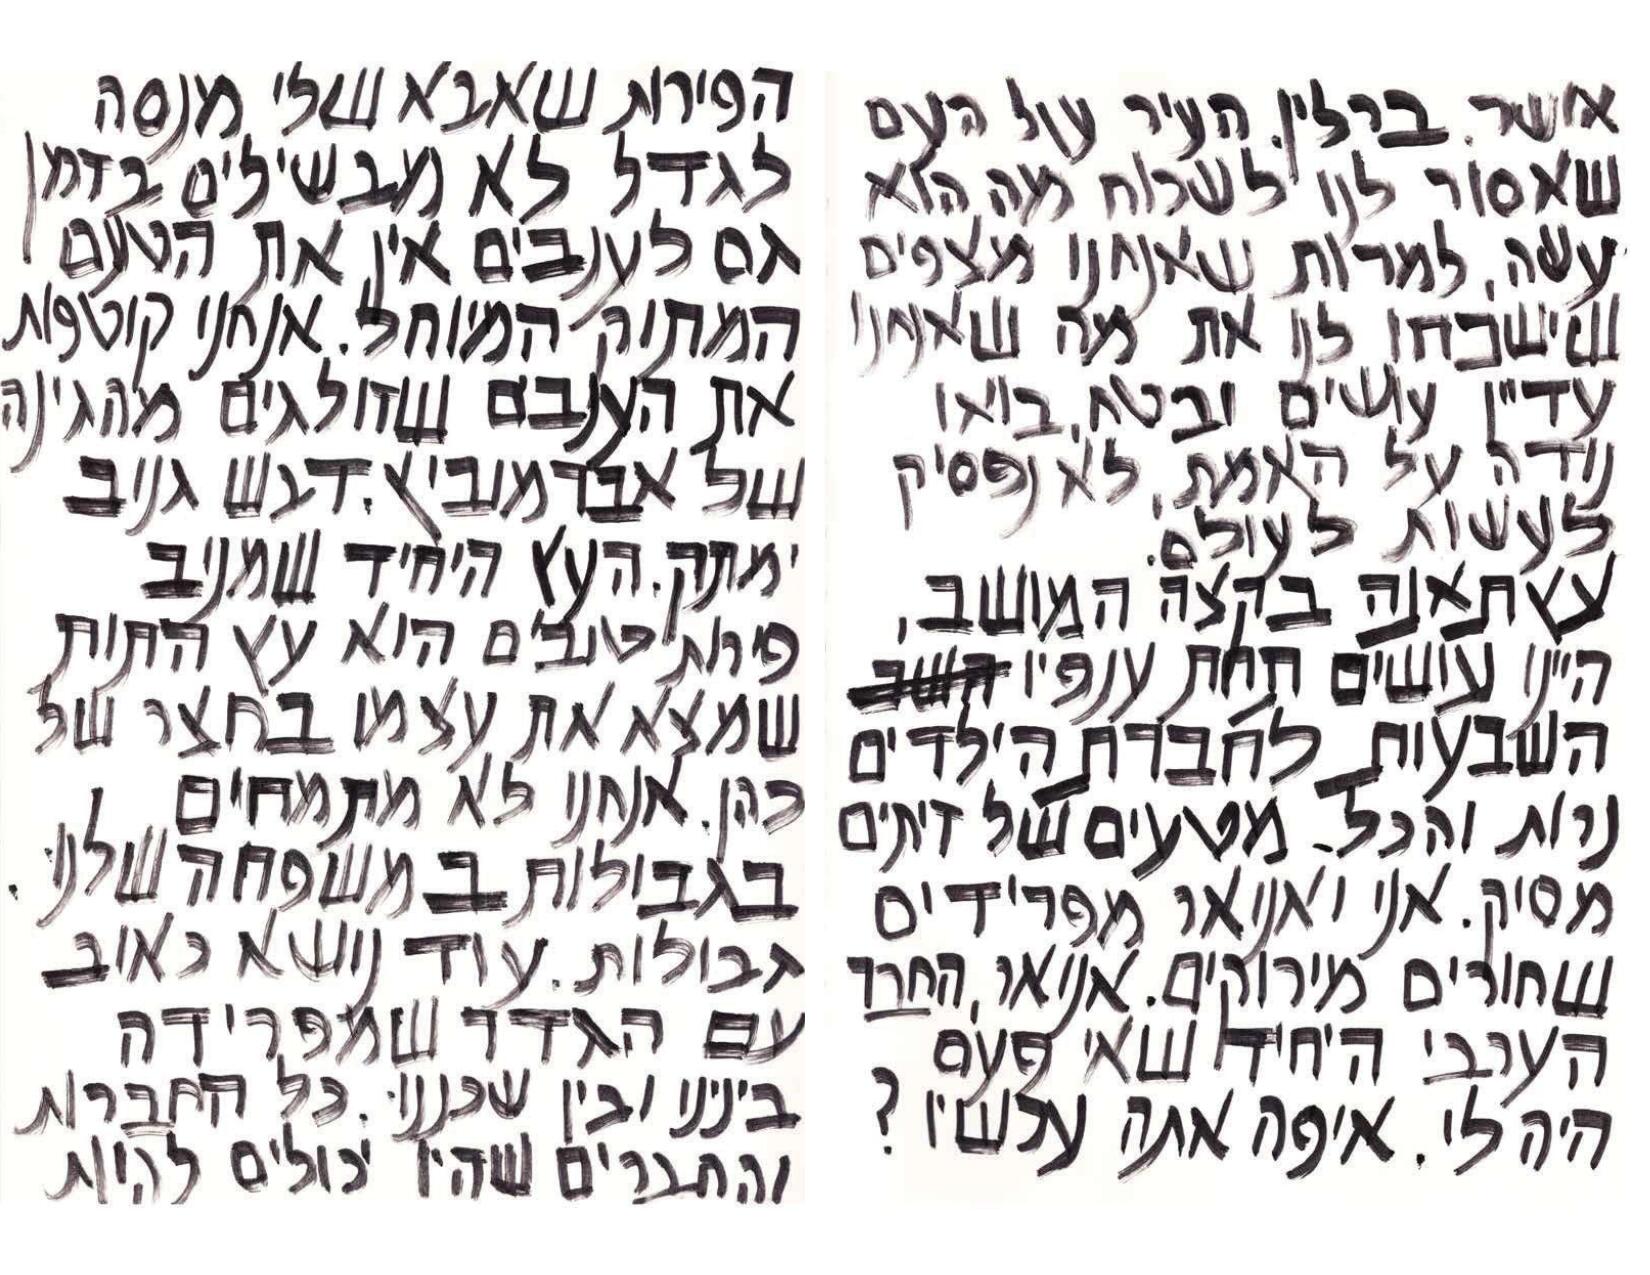 אושר. ברלין. העיר של העם
שאסור לנו לשכוח מה הוא
עשה, למרות שאנחנו מצפים
שישכחו לנו את מה שאנחנו
עדיין עושים ובטח, בואו
נודה על האמת, לא נפסיק
לעשות לעולם.
עץ תאנה בקצה המושב,
היינו עושים תחת ענפיו
השבעות לחברת הילדים
נרות והכל. מטעים של זיתים
מסיק. אני ואניאר מפרידים
שחורים מירוקים. אניאר, החבר
הערבי היחיד שאי פעם
היה לי. איפה אתה עכשיו?
הפירות שאבא שלי מנסה
לגדל לא מבשילים בזמן
גם לענבים אין את הטעם
המתוק המיוחל. אנחנו קוטפות
את הענבם שזולגים מהגינה
של אברמוביץ. דבש גנוב
ימתק. העץ היחיד שמניב
פירות טובים הוא עץ התות
שמצא את עצמו בחצר של
כהן. אנחנו לא מתמחים
בגבולות ב משפחה שלנו.
גבולות. עוד נושא כאוב
עם הגדר שמפרידה
בינינו ובין שכננו. כל החברות
והחברים שהיו יכולים להיות